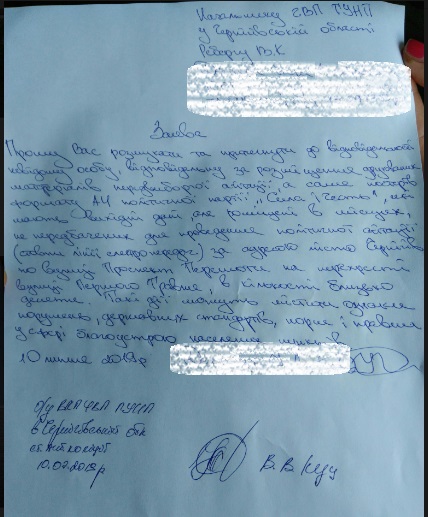 Начальнику ЧВП ГУНП
у Чернігівській області
Ребенку В.К
Заява
Прошу Вас розшукати та притягнути до відповідальності
невідому особу, відповідальну за розміщення друкованих
матеріалів передвиборчої агітації, а саме
формату А4 політичної партії „Сила і Честь", що
мають вихідні дані, але розміщені в місцях,
не передбачених для проведення політичної агітації
(стовпи лінії електропередач) за адресою місто Чернігів
по вулиці Проспект Перемоги на перехресті
вулиці Першого Травня, в кількості близько
десяти. Такі дії можуть містити
порушень, державних стандартів, норм і правил
у сфері благоустрою населених пунктів
10 липня 2019р
в Чернігівській обл
10.07.2019р
В.В